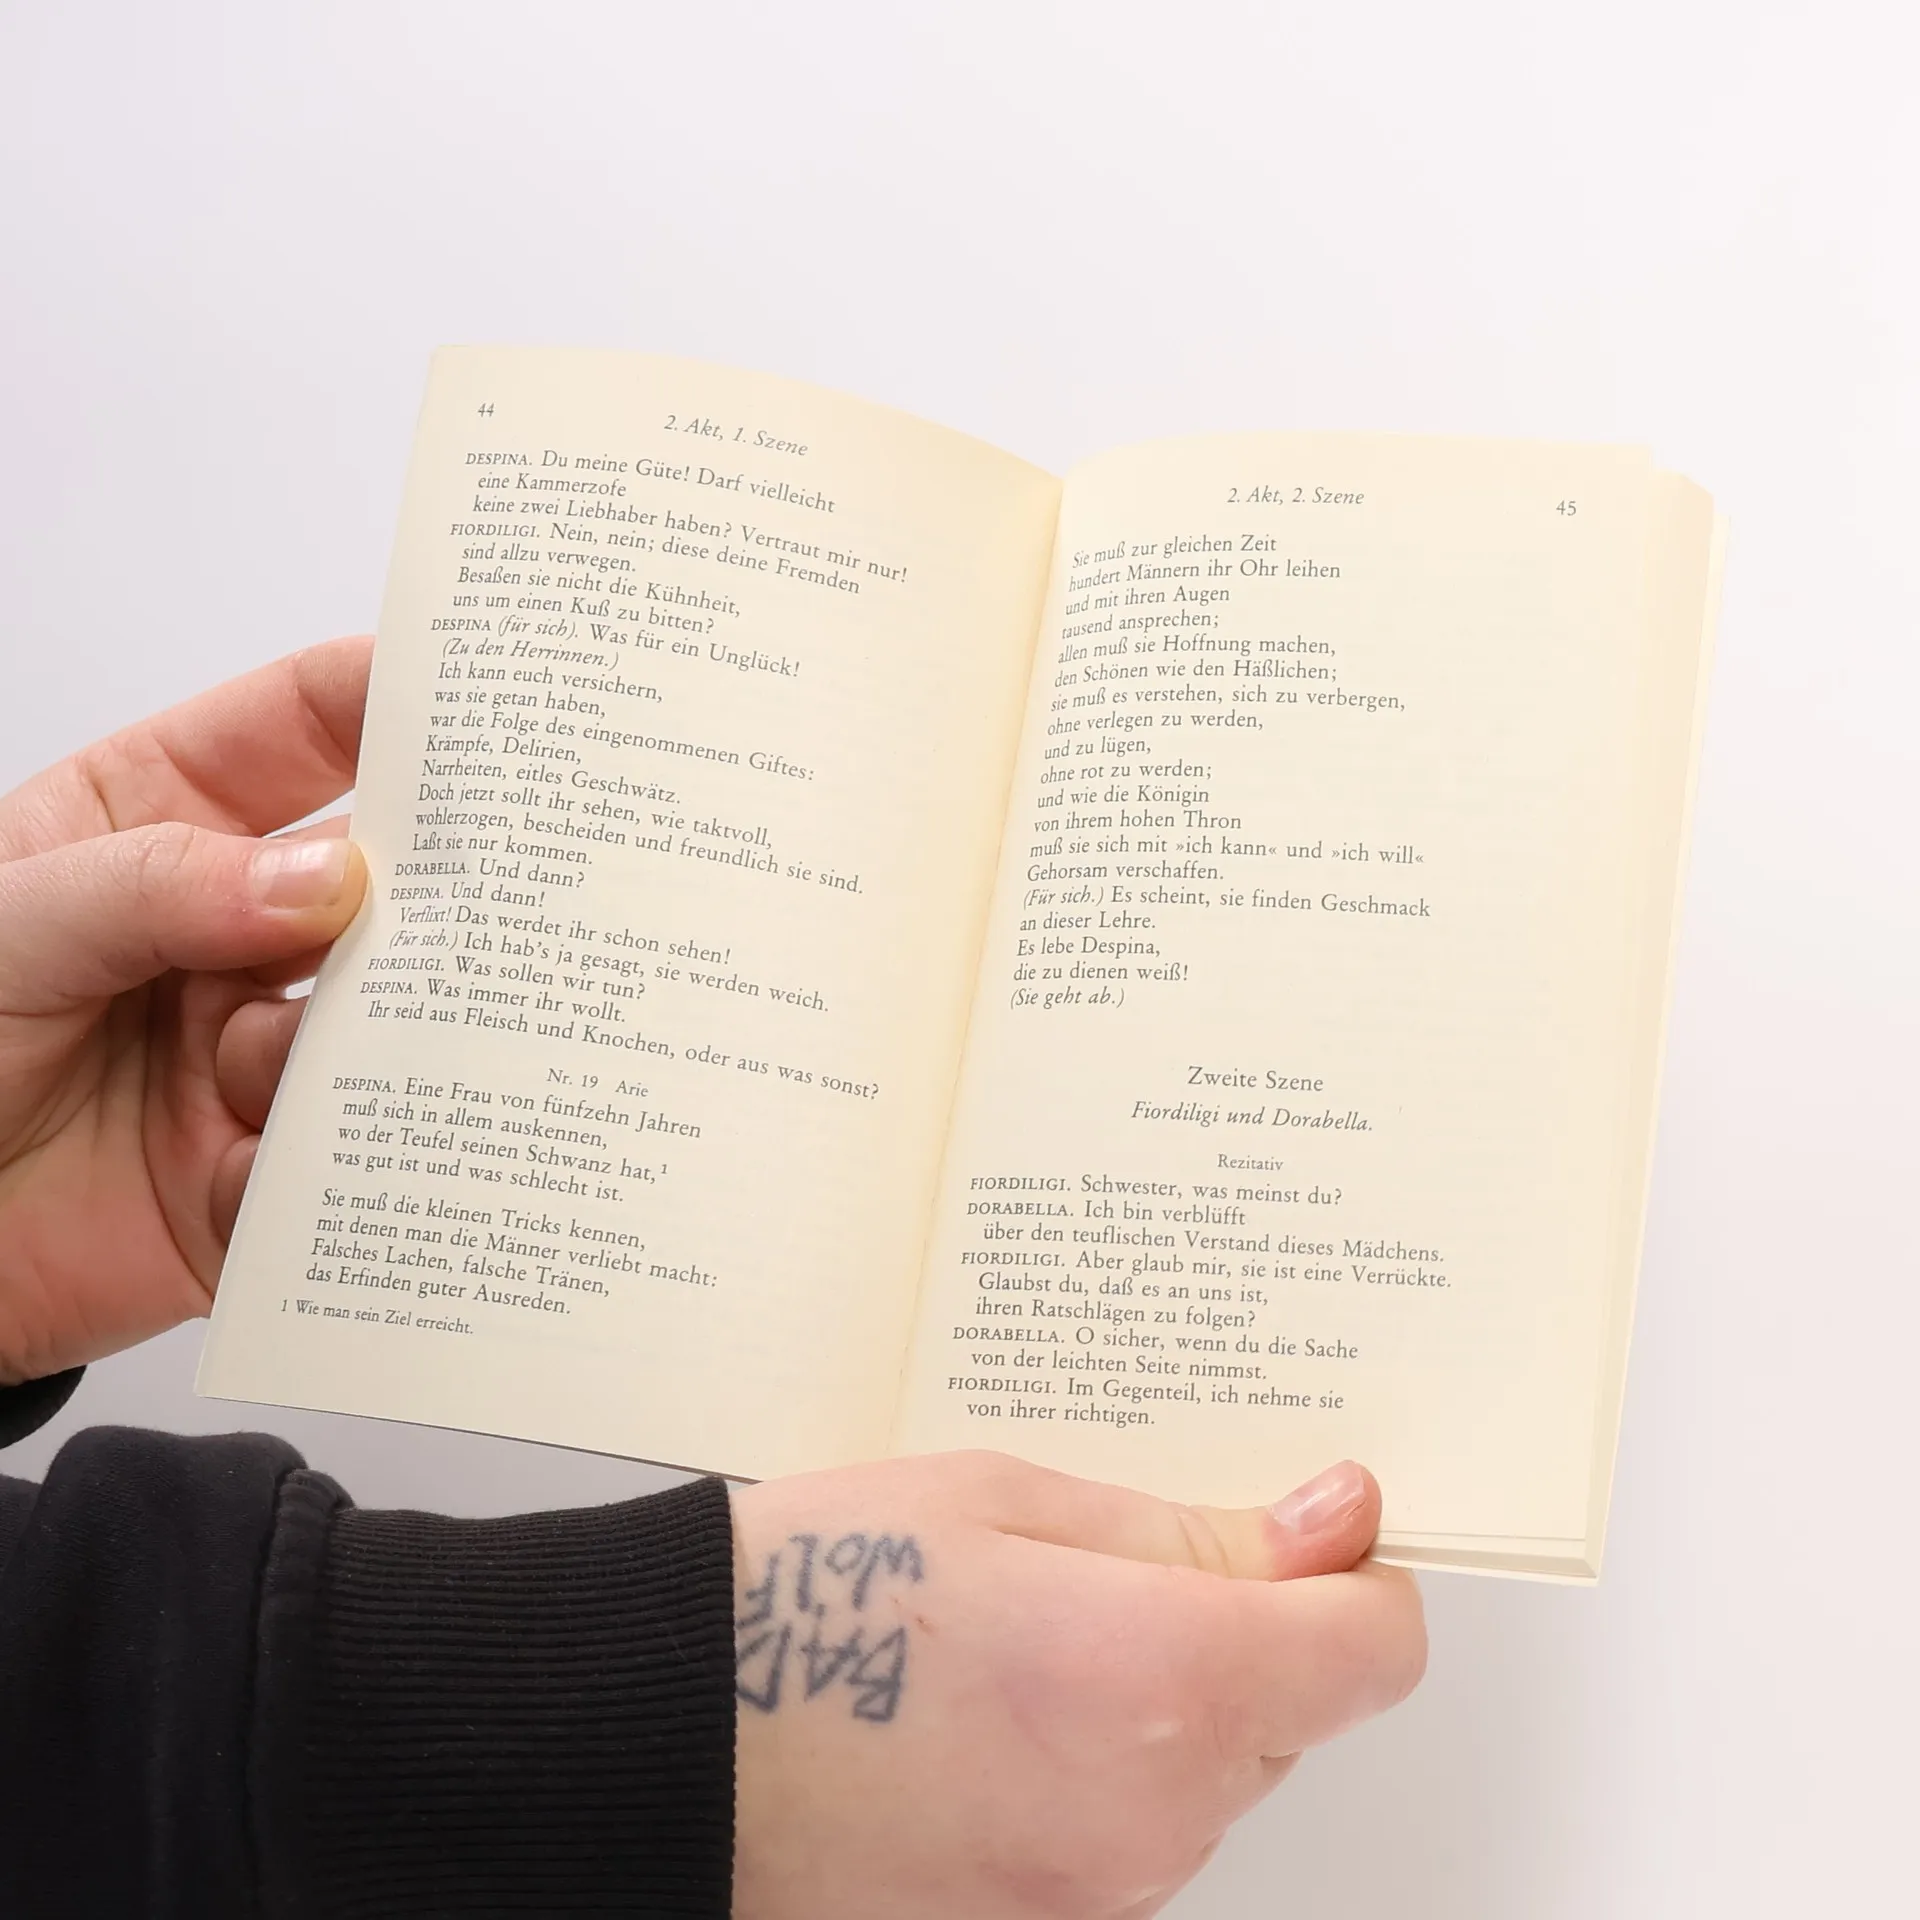 44
2. Akt, 1. Szene
DESPINA. Du meine Güte! Darf vielleicht
eine Kammerzofe
keine zwei Liebhaber haben? Vertraut mir nur!
FIORDILIGI. Nein, nein; diese deine Fremden
sind allzu verwegen.
Besaßen sie nicht die Kühnheit,
uns um einen Kuß zu bitten?
DESPINA (für sich). Was für ein Unglück!
(Zu den Herrinnen.)
Ich kann euch versichern,
was sie getan haben,
war die Folge des eingenommenen Giftes:
Krämpfe, Delirien,
Narrheiten, eitles Geschwätz.
Doch jetzt sollt ihr sehen, wie taktvoll,
wohlerzogen, bescheiden und freundlich sie sind.
Laßt sie nur kommen.
DORABELLA. Und dann?
DESPINA. Und dann!
Verflixt! Das werdet ihr schon sehen!
(Für sich.) Ich hab's ja gesagt, sie werden weich.
FIORDILIGI. Was sollen wir tun?
DESPINA. Was immer ihr wollt.
Ihr seid aus Fleisch und Knochen, oder aus was sonst?
Nr. 19 Arie
DESPINA. Eine Frau von fünfzehn Jahren
muß sich in allem auskennen,
wo der Teufel seinen Schwanz hat,¹
was gut ist und was schlecht ist.
Sie muß die kleinen Tricks kennen,
mit denen man die Männer verliebt macht:
Falsches Lachen, falsche Tränen,
das Erfinden guter Ausreden.
1 Wie man sein Ziel erreicht.
2. Akt, 2. Szene
45
Sie muß zur gleichen Zeit
hundert Männern ihr Ohr leihen
und mit ihren Augen
tausend ansprechen;
allen muß sie Hoffnung machen,
den Schönen wie den Häßlichen;
sie muß es verstehen, sich zu verbergen,
ohne verlegen zu werden,
und zu lügen,
ohne rot zu werden;
und wie die Königin
von ihrem hohen Thron
muß sie sich mit »ich kann« und »ich will«
Gehorsam verschaffen.
(Für sich.) Es scheint, sie finden Geschmack
an dieser Lehre.
Es lebe Despina,
die zu dienen weiß!
(Sie geht ab.)
Zweite Szene
Fiordiligi und Dorabella.
Rezitativ
FIORDILIGI. Schwester, was meinst du?
DORABELLA. Ich bin verblüfft
über den teuflischen Verstand dieses Mädchens.
FIORDILIGI. Aber glaub mir, sie ist eine Verrückte.
Glaubst du, daß es an uns ist,
ihren Ratschlägen zu folgen?
DORABELLA. O sicher, wenn du die Sache
von der leichten Seite nimmst.
FIORDILIGI. Im Gegenteil, ich nehme sie
von ihrer richtigen.
BAD
WOLF